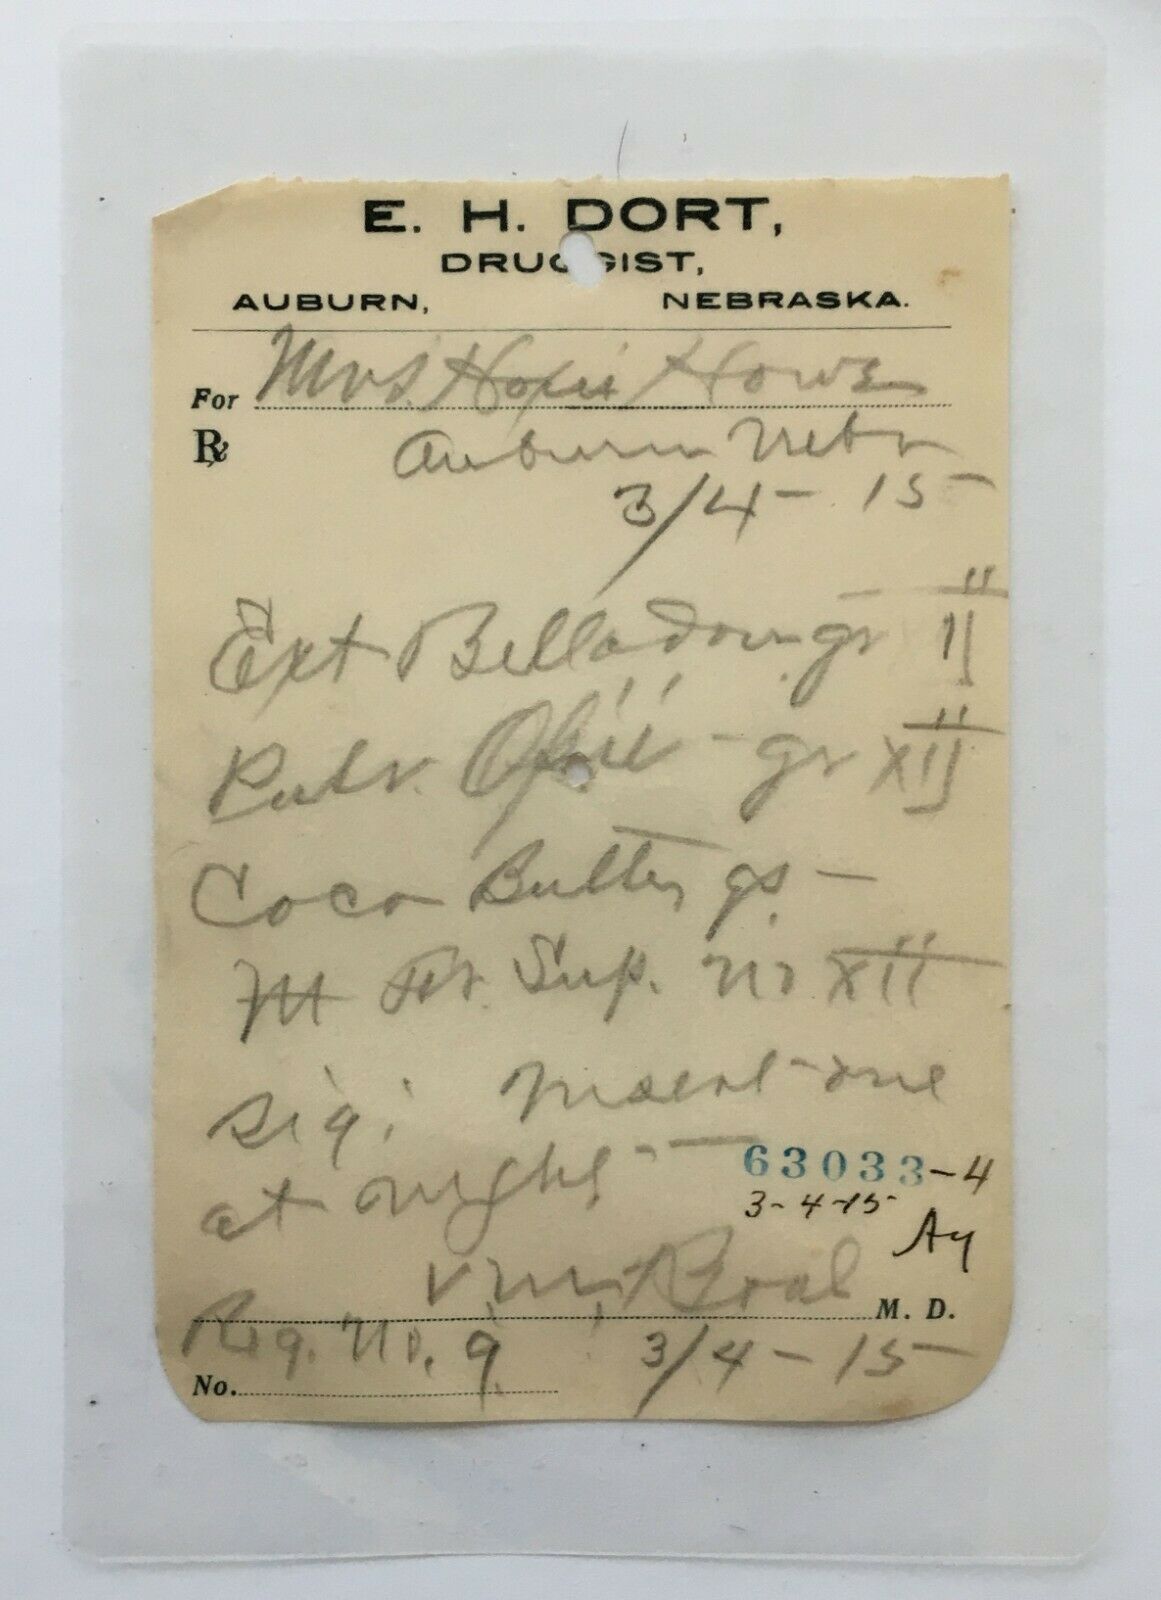 E. H. DORT,
DRUGGIST,
AUBURN, NEBRASKA.
For Mrs. Howe
℞ Auburn Nebr
3/4 - 15
Ext Belladon gr II
Pulv. Opii - gr XII
Coco Butter qs -
M Ft. Sup. No XII
Sig: Insert one
at night
63033-4
3-4-15
Boal M. D.
Reg. No. 9 3/4 - 15
No.